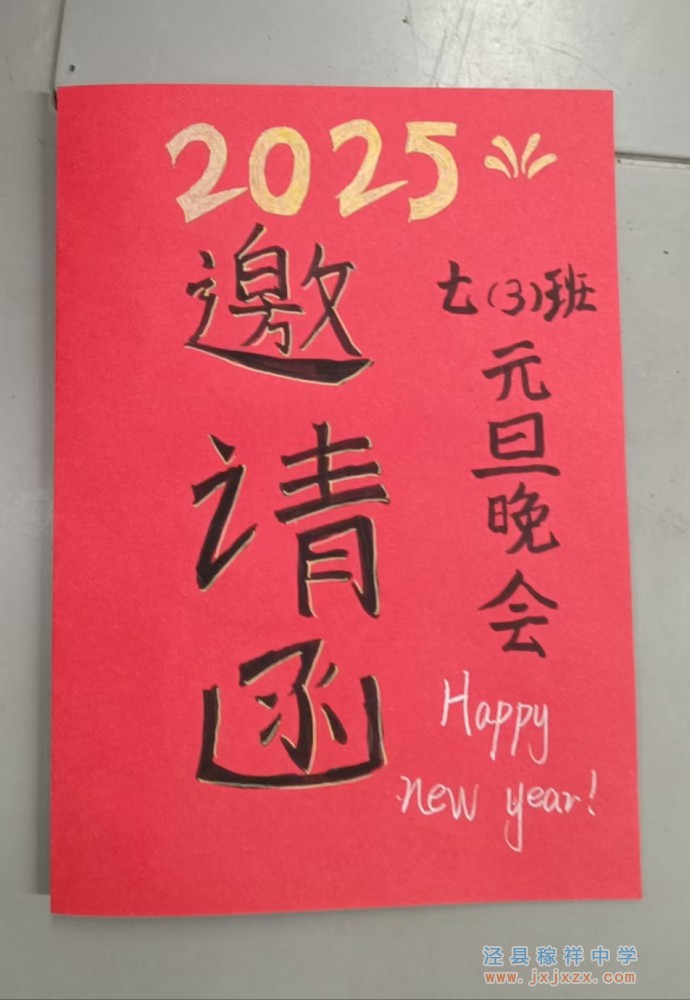 2025
邀请函
七(3)班
元旦晚会
Happy
new year!
泾县稼祥中学
www.jxjxzx.com